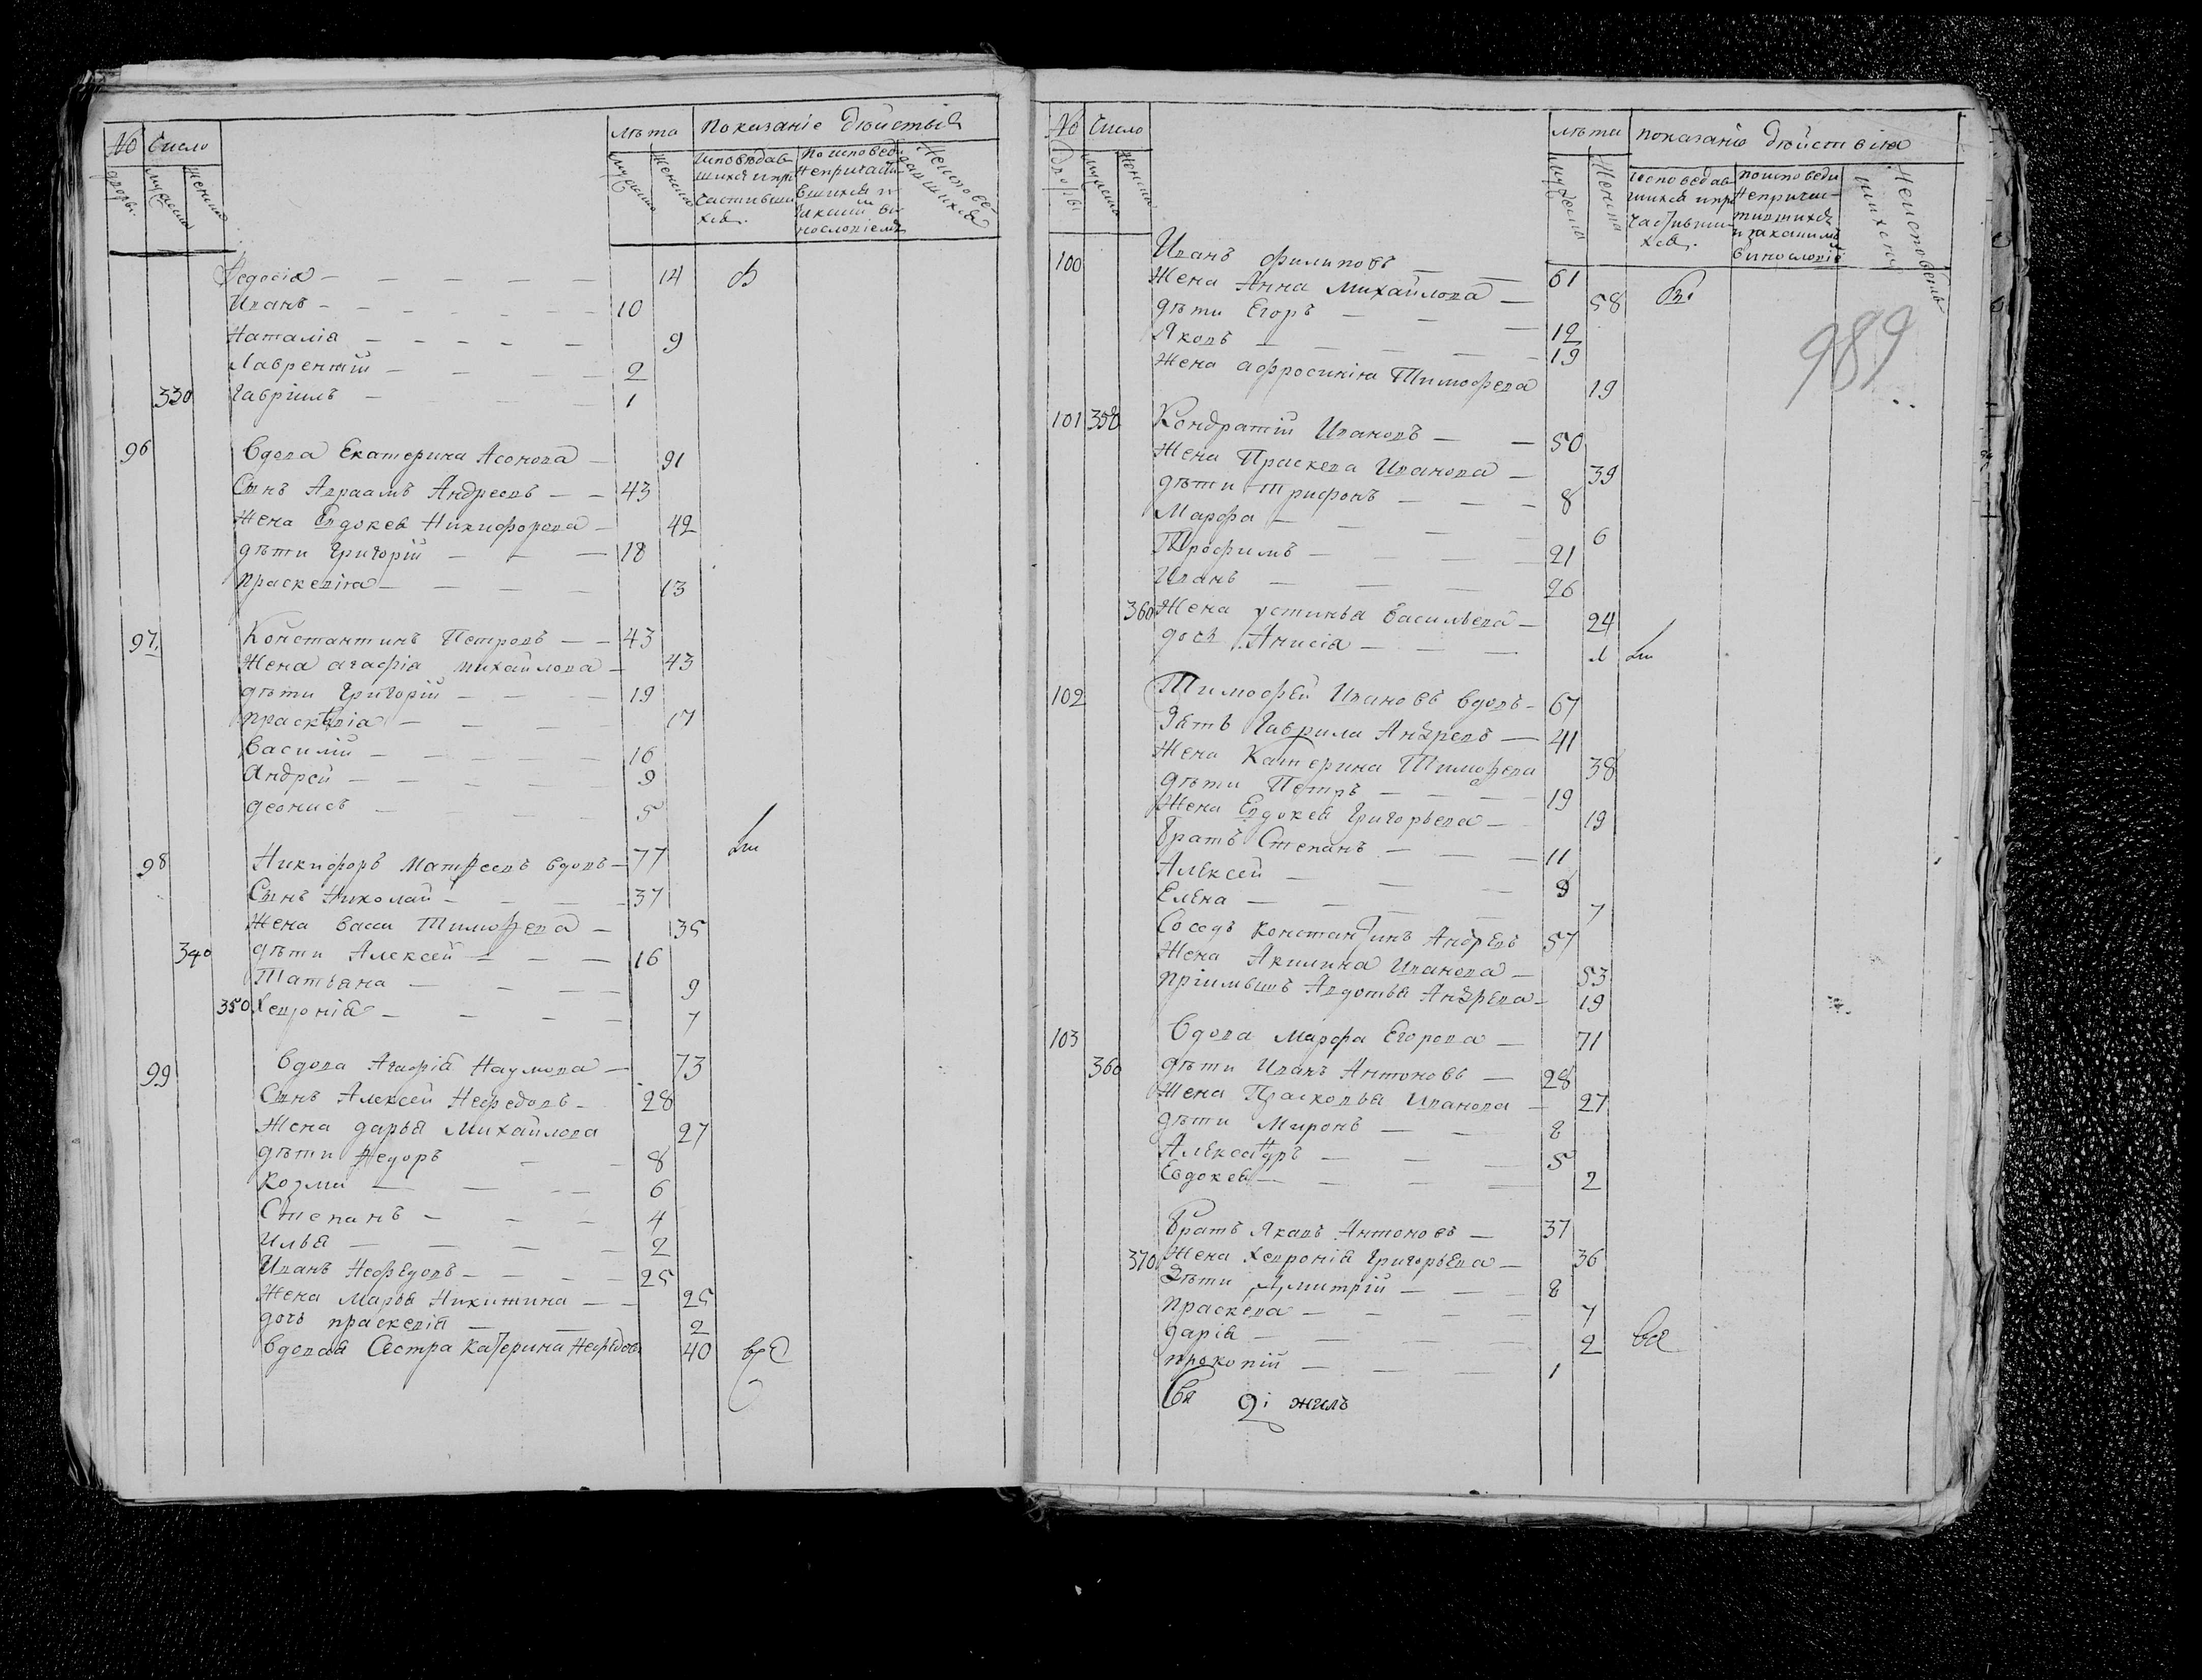 № Число лѣта показаніе дѣйствія
дворы. мужеска женска мужеска женска
исповѣдавшихся и причастившихся.
Федосія — 14
Иванъ — 10
Наталія — 9
Лаврентій — 2
330 Гавріилъ — 1
96 Вдова Екатерина Асонова — 91
Сынъ Авраамъ Андреевъ — 43
Жена Евдокея Никифорова — 42
дѣти Григорій — 18
праскевіа — 13
97. Константинъ Петровъ — 43
Жена агафіа михайлова — 43
дѣти Григорій — 19
праскевіа — 17
Василій — 16
Андрей — 9
деонисъ — 5
98 Никифоръ Матфеевъ вдовъ — 77
Сынъ Николай — 37
Жена васса Тимофева — 35
340 дѣти Алексей — 16
Татьяна — 9
350 Хевроніа — 7
99 Вдова Агафіа Наумова — 73
Сынъ Алексей Нефедовъ — 28
Жена дарья Михайлова 27
дѣти Федоръ — 8
козма — 6
Степанъ — 4
Илья — 2
Иванъ Нефедовъ — 25
Жена марья Никитина — 25
дочь праскевіа — 2
вдовая Сестра катерина Нефедова 40
№ Число лѣта показаніе дѣйствіа
Дворы мужеска женска мужеска женска
100 Иванъ филиповъ — 61
Жена Анна Михайлова — 58
дѣти Егоръ — 12
Яковъ — 19
Жена афросиніа Тимофева 19
101 350 Кондратій Ивановъ — 50
Жена Праскева Иванова — 39
дѣти Трифонъ — 8
Марфа — 6
Трофимъ — 21
Иванъ — 26
360 Жена устинья васильева — 24
дочь Анисіа —
102 Тимофей Ивановъ вдовъ — 67
Зять Гаврила Андревъ — 41
Жена Катерина Тимофева 38
дѣти Петръ — 19
Жена Евдокея Григорьева — 19
братъ Степанъ — 11
Алексей — 9
Елена — 7
Соседъ константинъ Андревъ 57
Жена Акилина Иванова — 53
пріимышъ Авдотья Андрева — 19
103 Вдова Марфа Егорова — 71
360 дѣти Иванъ Антоновъ — 28
Жена Прасковья Иванова — 27
дѣти Миронъ — 8
Александръ — 5
Евдокея — 2
братъ Яковъ Антоновъ — 37
370 Жена Хевроніа Григорьева — 36
дѣти Дмитрій — 8
праскева — 7
даріа — 2
прокопій — 1
989